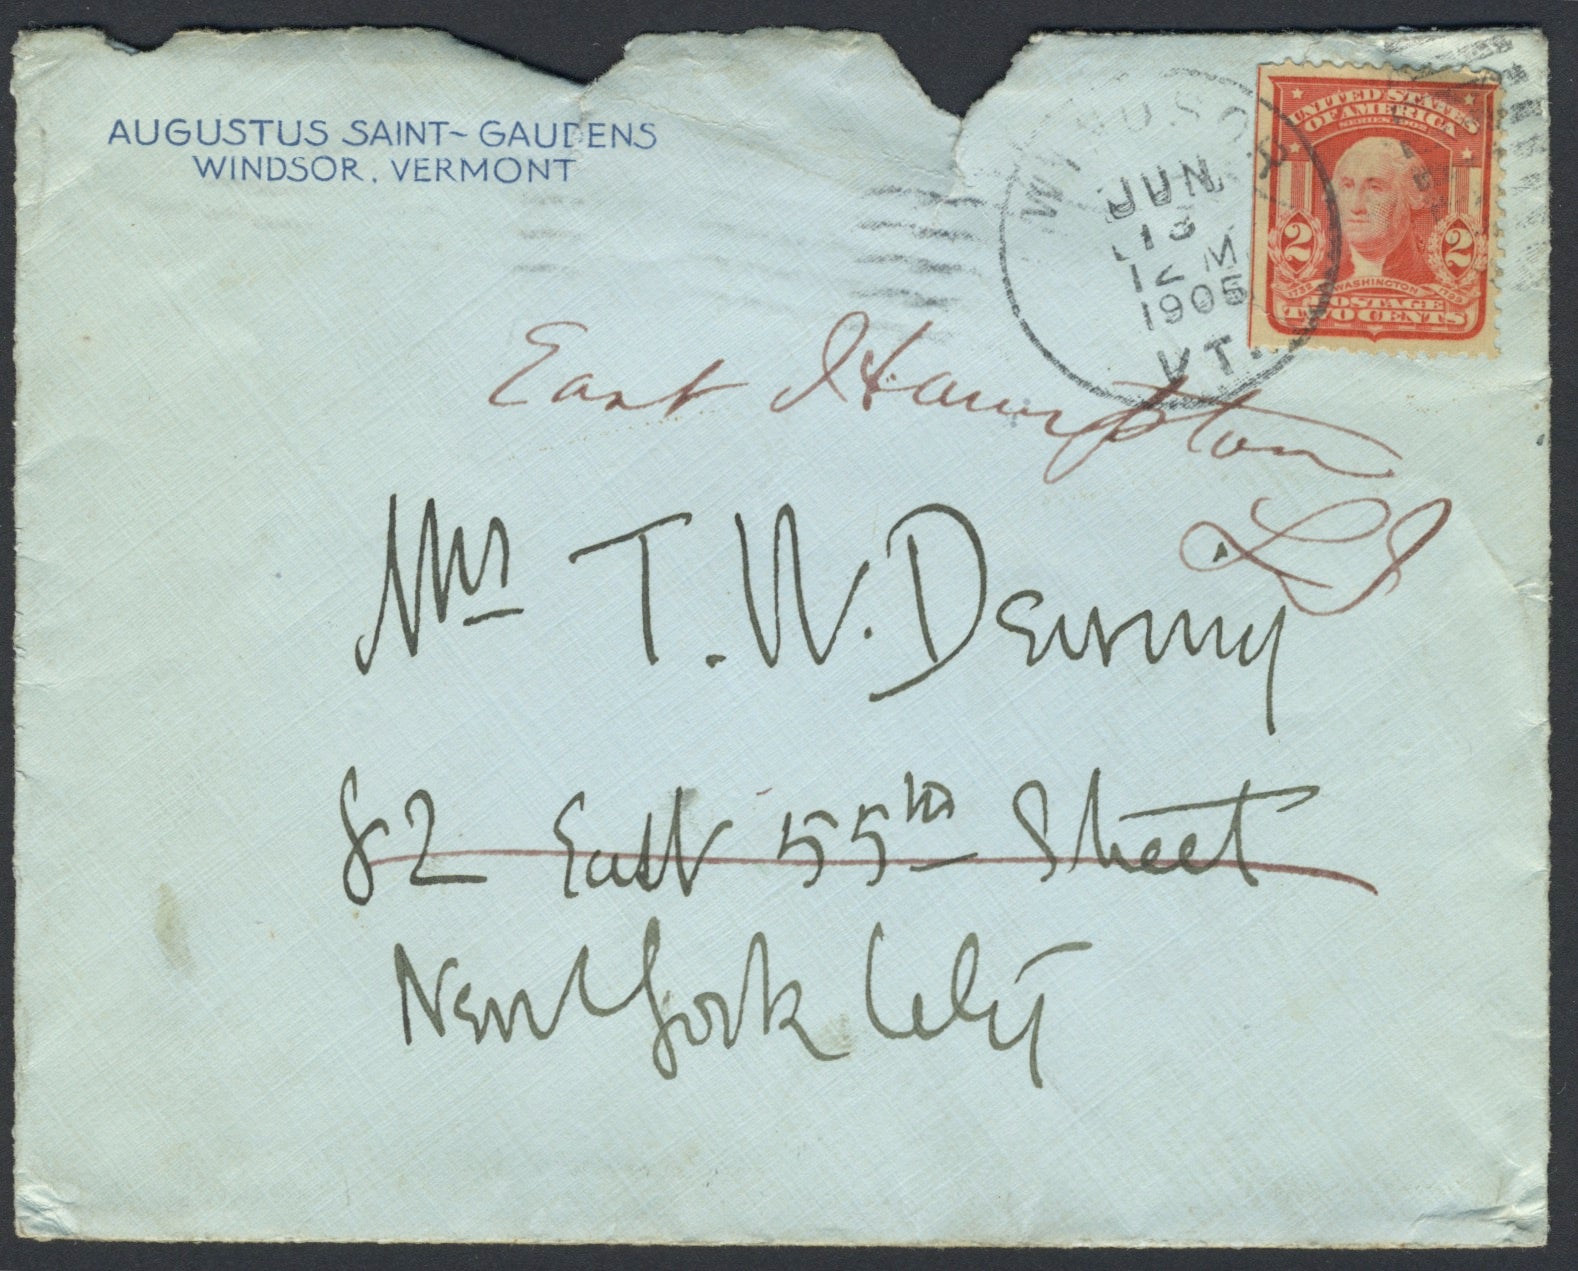 AUGUSTUS SAINT-GAUDENS
WINDSOR, VERMONT
WINDSOR
JUN
13
12 M
1905
VT.
UNITED STATES
OF AMERICA
SERIES 1902
2 2
1732 WASHINGTON 1799
POSTAGE
TWO CENTS
East Hampton
L I
Mrs T. W. Dewing
82 East 55th Street
New York City